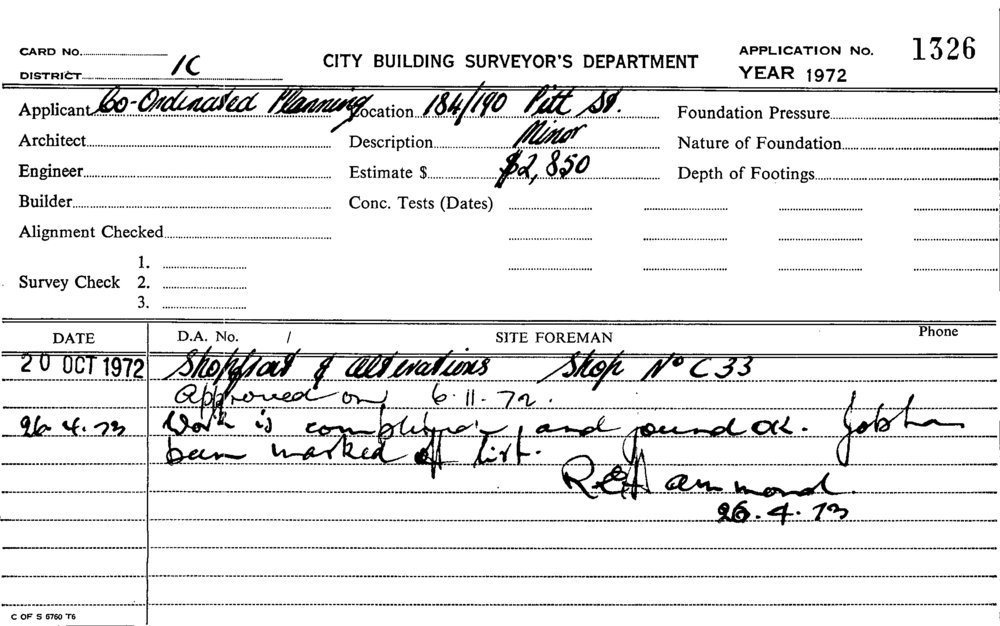 CARD No.
DISTRICT 1C
CITY BUILDING SURVEYOR'S DEPARTMENT
APPLICATION No. 1326
YEAR 1972
Applicant Co-Ordinated Planning Location 184/190 Pitt St. Foundation Pressure
Architect Description Minor Nature of Foundation
Engineer Estimate $ $2,850 Depth of Footings
Builder Conc. Tests (Dates)
Alignment Checked
1.
Survey Check 2.
3.
DATE D.A. No. / SITE FOREMAN Phone
20 OCT 1972 Shopfront & alterations Shop No C33
Approved on 6.11.72.
26.4.73 Work is completed and found OK. Job has
been marked off list.
R.E. Hammond.
26.4.73
C OF S 6760 T6